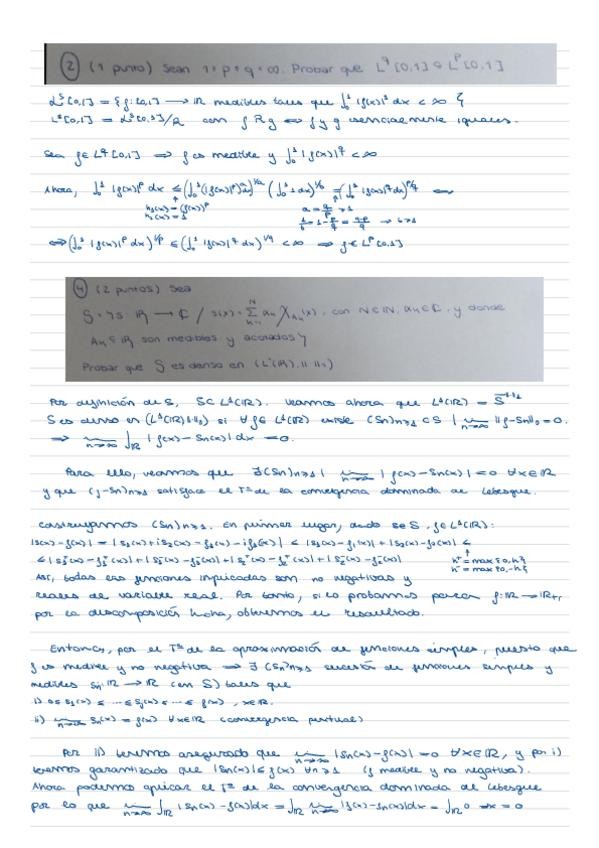 2 (1 punto) Sean 1 < p < q < ∞. Probar que L^q [0,1] ⊂ L^p [0,1]
ℒ^s [0,1] = { f: [0,1] → ℝ medibles tales que ∫₀¹ |f(x)|^s dx < ∞ }
L^s [0,1] = ℒ^s [0,1]/R con f R g ⇔ f y g esencialmente iguales.
Sea f ∈ L^q [0,1] ⇒ f es medible y ∫₀¹ |f(x)|^q < ∞
Ahora, ∫₀¹ |f(x)|^p dx ≤ (∫₀¹ (|f(x)|^p)^a dx)^{1/a} (∫₀¹ 1 dx)^{1/b} = (∫₀¹ |f(x)|^q dx)^{p/q} ⇔
h₁(x) = |f(x)|^p a = q/p > 1
h₂(x) = 1 1/b = 1 - p/q = (q-p)/q → b > 1
⇔ (∫₀¹ |f(x)|^p dx)^{1/p} ≤ (∫₀¹ |f(x)|^q dx)^{1/q} < ∞ ⇒ f ∈ L^p [0,1]
4 (2 puntos) Sea
S = { s: ℝ → ℂ / s(x) = Σ_{n=1}^N αₙ χ_{Aₙ}(x), con N ∈ ℕ, αₙ ∈ ℂ, y donde
Aₙ ⊂ ℝ son medibles y acotados }
Probar que S es denso en (L¹(ℝ), ‖·‖₁)
Por definición de S, S ⊂ L¹(ℝ). Veamos ahora que L¹(ℝ) = S̄^{‖·‖₁}
S es denso en (L¹(ℝ), ‖·‖₁) si ∀ f ∈ L¹(ℝ) existe (Sn)n≥1 ⊂ S | lim_{n→∞} ‖f - Sn‖₁ = 0.
⇒ lim_{n→∞} ∫_ℝ |f(x) - Sn(x)| dx = 0.
Para ello, veamos que ∃ (Sn)n≥1 | lim_{n→∞} |f(x) - Sn(x)| = 0 ∀x ∈ ℝ
y que (f - Sn)n≥1 satisface el Tª de la convergencia dominada de Lebesgue.
Construyamos (Sn)n≥1. En primer lugar, dado s ∈ S, f ∈ L¹(ℝ):
|s(x) - f(x)| = |s₁(x) + is₂(x) - f₁(x) - if₂(x)| ≤ |s₁(x) - f₁(x)| + |s₂(x) - f₂(x)| ≤
≤ |s₁⁺(x) - f₁⁺(x)| + |s₁⁻(x) - f₁⁻(x)| + |s₂⁺(x) - f₂⁺(x)| + |s₂⁻(x) - f₂⁻(x)| h⁺ = max{0, h}
h⁻ = max{0, -h}
Así, todas las funciones implicadas son no negativas y
reales de variable real. Por tanto, si lo probamos para f: ℝ → ℝ₊,
por la descomposición hecha, obtenemos el resultado.
Entonces, por el Tª de la aproximación de funciones simples, puesto que
f es medible y no negativa ⇒ ∃ (Sn)n≥1 sucesión de funciones simples y
medibles Sn: ℝ → ℝ (en S) tales que
i) 0 ≤ S₁(x) ≤ ... ≤ Sj(x) ≤ ... ≤ f(x), x ∈ ℝ.
ii) lim_{n→∞} Sn(x) = f(x) ∀x ∈ ℝ (convergencia puntual)
Por ii) tenemos asegurado que lim_{n→∞} |Sn(x) - f(x)| = 0 ∀x ∈ ℝ, y por i)
tenemos garantizado que |Sn(x)| ≤ f(x) ∀n ≥ 1 (f medible y no negativa).
Ahora podemos aplicar el Tª de la convergencia dominada de Lebesgue
por lo que lim_{n→∞} ∫_ℝ |Sn(x) - f(x)| dx = ∫_ℝ lim_{n→∞} |f(x) - Sn(x)| dx = ∫_ℝ 0 dx = 0